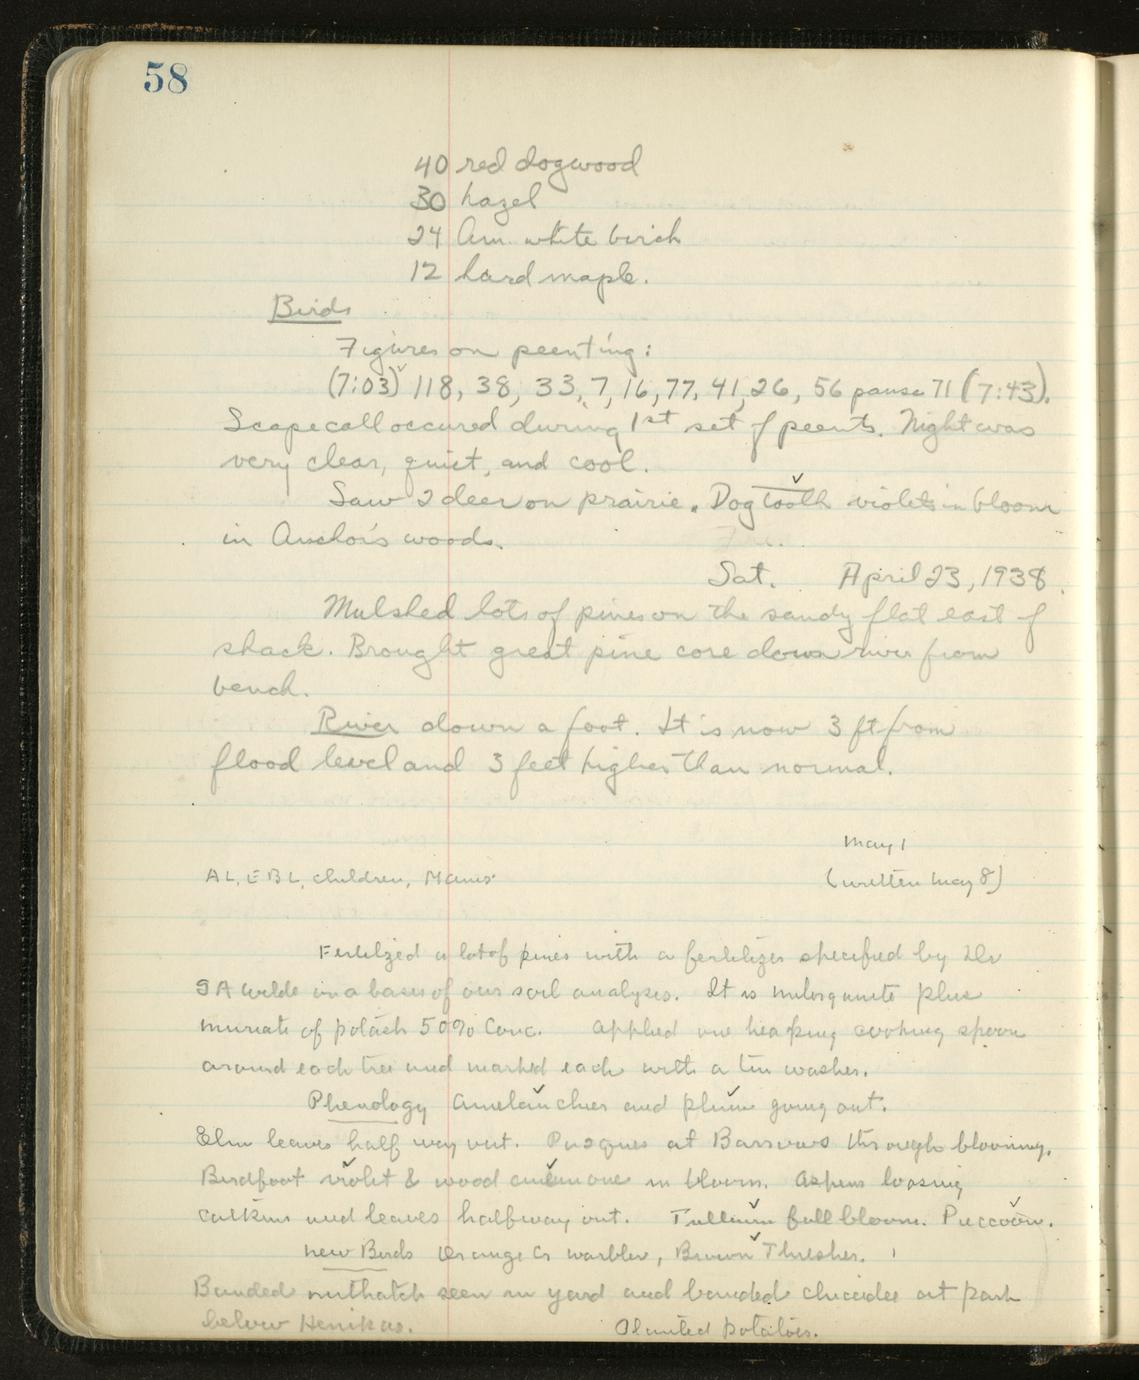 58
40 red dogwood
30 hazel
24 Am. white birch
12 hard maple.
Birds
Figures on peenting:
(7:03) 118, 38, 33, 7, 16, 77, 41, 26, 56 pause 71 (7:43).
Scape call occured during 1st set of peents. Night was
very clear, quiet, and cool.
Saw 2 deer on prairie. Dogtooth violets in bloom
in Anchor's woods.
Sat. April 23, 1938.
Mulshed lots of pines on the sandy flat east of
shack. Brought great pine core down river from
bench.
River down a foot. It is now 3 ft from
flood level and 3 feet higher than normal.
May 1
AL, EBL, children,
(written May 8)
Fertilized a lot of pines with a fertilizer specified by Dr
SA Wilde on a basis of our soil analyses. It is milorganite plus
muriate of potash 50% conc. Applied one heaping cooking spoon
around each tree and marked each with a tin washer.
Phenology Amelanchier and plum going out.
Elm leaves half way out. Pasques at Barrows through blooming.
Birdfoot violet & wood anemone in bloom. Aspens loosing
catkins and leaves halfway out. Trillium full bloom. Puccoon.
New Birds Orange Cr warbler, Brown Thrasher.
Banded nuthatch seen in yard and banded chicadee at park
below
Planted potatoes.